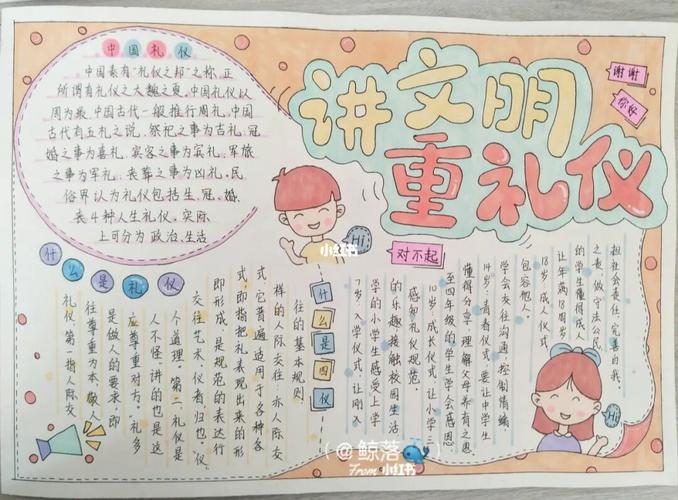 讲文明
重礼仪
谢谢
你好
中国礼仪
中国素有"礼仪之邦"之称.正
所谓有礼仪之大趣之夏.中国礼仪以
周为最.中国古代一般推行周礼.中国
古代有五礼之说.祭祀之事为吉礼.冠
婚之事为喜礼.宾客之事为宾礼.军旅
之事为军礼.丧葬之事为凶礼.民
俗界认为礼仪包括生.冠.婚.
丧4种人生礼仪.实际
上可分为政治.生活
Hi
小红书
对不起
什么是礼仪
礼仪.第一指人际交
往尊重为本.做人
是做人的要求.即
应尊重对方".礼多
人不怪"讲的也是这
个道理".第二.礼仪是
交往艺术.仪者归也"."仪
即形成.是规范的表达行
式.即指把礼表现出来的形
式.它普遍适用于各种各
样的人际交往.亦人际交
往的基本规则
什么是四仪
7岁入学仪式.让刚入
学的小学生感受上学
的乐趣接触校园生活
感知礼仪规范.
10岁成长仪式.让小学三
至四年级的学生学会感恩
懂得分享.理解父母养育之恩.
14岁青春仪式.要让中学生
学会交往沟通.控制情绪.
包容他人.
18岁成人仪式
让年满18周岁
的学生懂得成人
之责.做守法公民
担社会责任.完善自我.
Hi
(@鲸落
From 小红书